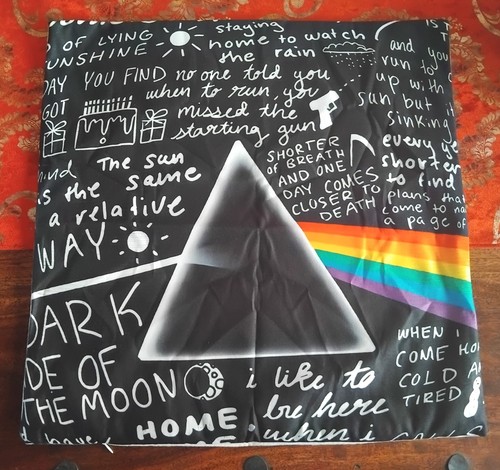 OF LYING
UNSHINE
staying
home to watch
the rain
and you
run to
up with
sun, but it
sinking
DAY
GOT
YOU FIND no one told you
when to run, you
missed the
starting gun
SHORTER
OF BREATH
AND ONE
DAY COMES
CLOSER TO
DEATH
every ye
shorter
to find
plans that
come to na
a page of
The sun
is the same
a relative
WAY
DARK
DE OF
THE MOON
i like to
be here
when i
WHEN I
COME HO
COLD A
TIRED
HOME
have